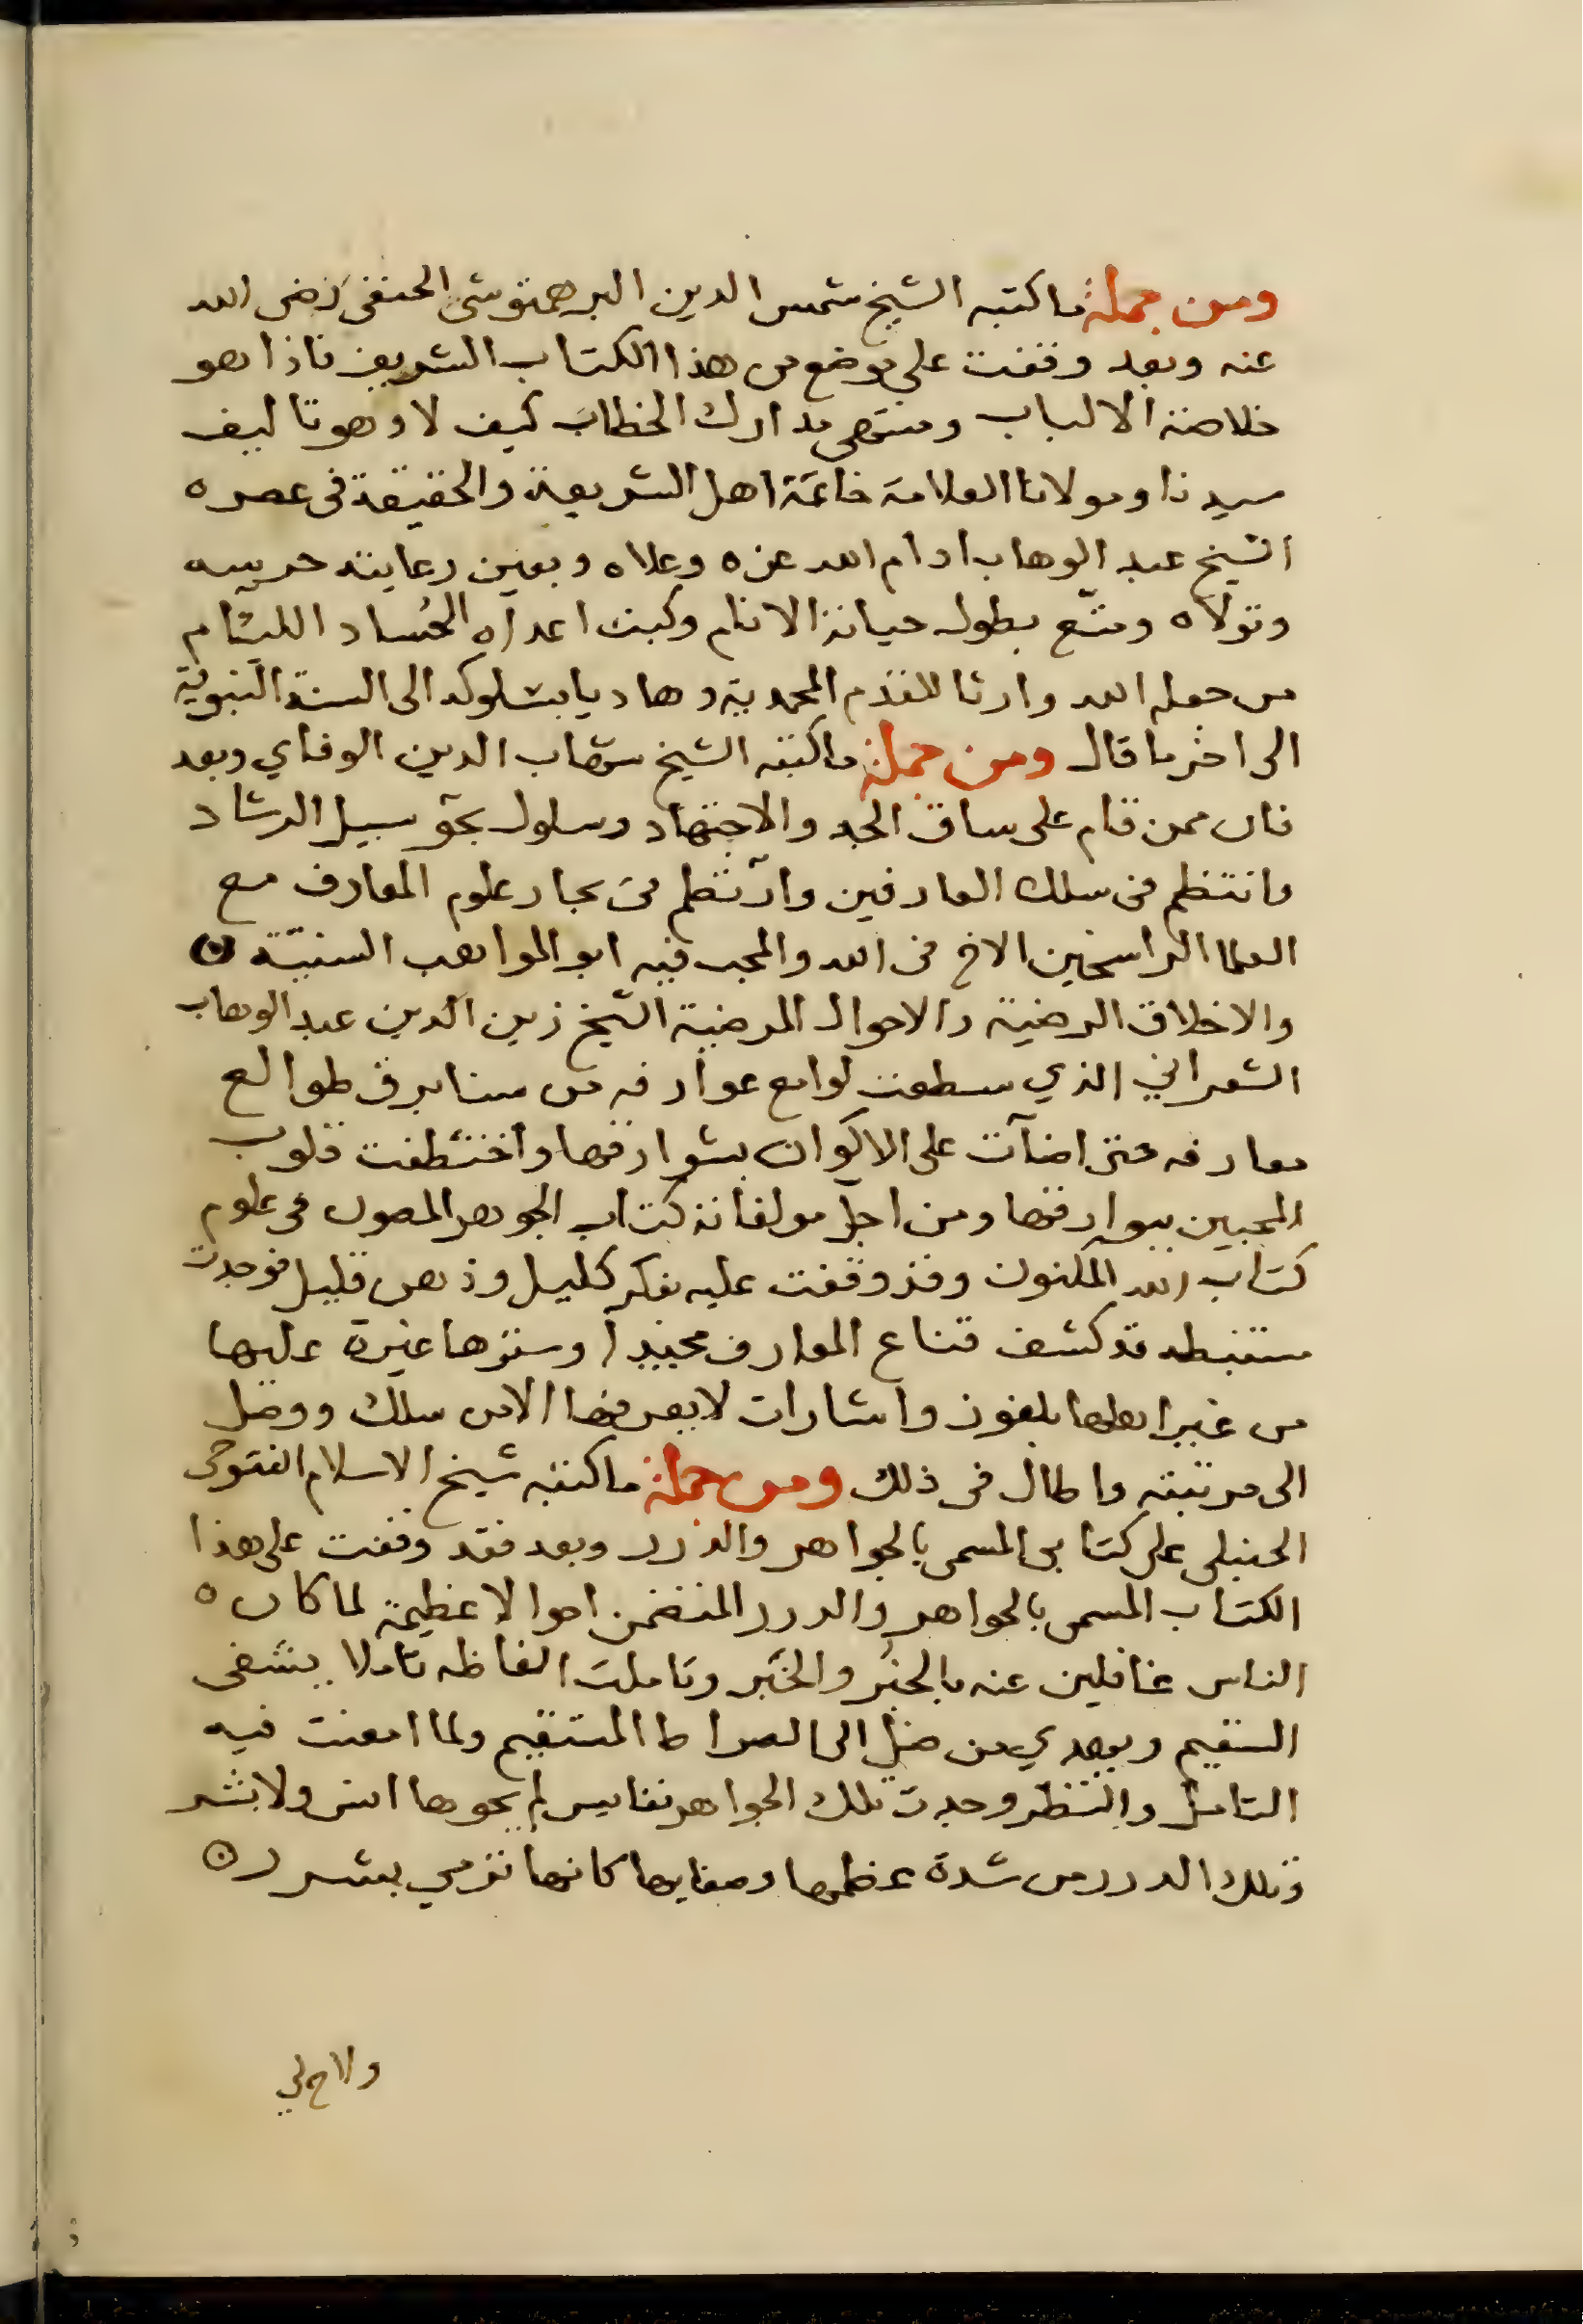 ومن جملة ما كتبه الشيخ شمس الدين البرهمتوشي الحنفي رضى الله
عنه وبعد وقفت على موضع من هذا الكتاب الشريف فاذا هو
خلاصة الالباب ومنتهى مدارك الخطاب كيف لا وهو تاليف
سيدنا ومولانا العلامة خاتمة اهل الشريعة والحقيقة فى عصره
الشيخ عبد الوهاب ادام الله عزه وعلاه وبعين رعايته حرسه
وتولاه ومتّع بطول حياته الانام وكبت اعداه الحُساد اللئام
من جعله الله وارثا للقدم المحمدية وهاديا بسلوكه الى السنة النبوية
الى اخر ما قال ومن جملة ما كتبه الشيخ شهاب الدين الوفاي وبعد
فان ممن قام على ساق الجد والاجتهاد وسلوك نحو سبيل الرشاد
وانتظم فى سلك العارفين والتطم فى بحار علوم المعارف مع
العلما الراسخين الاخ فى الله والمحب فيه ابو المواهب السنيّة
والاخلاق الرضية والاحوال المرضية الشيخ زين الدين عبد الوهاب
الشعراني الذي سطعت لوامع عوارفه من سنا برق طوالع
معارفه حتى اضآت على الاكوان بشوارقها واختطفت قلوب
المحبين ببوارقها ومن اجلّ مولفاته كتاب الجوهر المصون فى علوم
كتاب الله المكنون وقد وقفت عليه بفكر كليل وذهن قليل فوجدت
مستنبطه قد كشف قناع المعارف مجيدا وسترها غيرة عليها
من غير اهلها بلغوز واشارات لا يعرفها الا من سلك ووصل
الى مرتبته واطال فى ذلك ومن جملة ما كتبه شيخ الاسلام الفتوحى
الحنبلى على كتابى المسمى بالجواهر والدرر وبعد فقد وقفت على هذا
الكتاب المسمى بالجواهر والدرر المتضمن احوالا عظيمة لما كان
الناس غافلين عنه بالخبر والخبر وتاملت الفاظه تاملا يشفى
السقيم ويهدي من ضل الى الصراط المستقيم ولما امعنت فيه
التامل والنظر وجدت تلك الجواهر نفايس لم يحوها انس ولا بشر
وتلك الدرر من شدة عظمها وصفايها كانها ترمي بشرر
ولاح لي